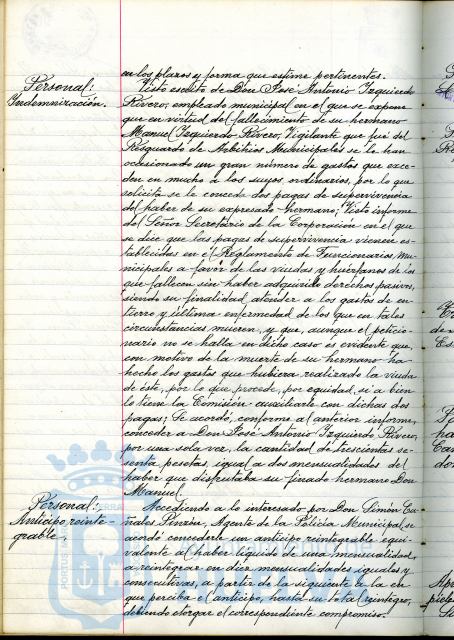 en los plazos y forma que estime pertinentes.
Personal:
Indemnización.
Visto escrito de Don José Antonio Izquierdo
Rivero, empleado municipal en el que se expone
que en virtud del fallecimiento de su hermano
Manuel Izquierdo Rivero, Vigilante que fué del
Resguardo de Arbitrios Municipales se le han
ocasionado un gran número de gastos que exce-
den en mucho a los suyos ordinarios, por lo que
solicita se le conceda dos pagas de supervivencia
del haber de su expresado hermano; Visto informe
del Señor Secretario de la Corporación en el que
se dice que las pagas de supervivencia vienen es-
tablecidas en el Reglamento de Funcionarios Mu-
nicipales a favor de las viudas y huérfanos de los
que fallecen sin haber adquirido derechos pasivos,
siendo su finalidad atender a los gastos de en-
tierro y última enfermedad de los que en tales
circunstancias mueren, y que, aunque el peticio-
nario no se halla en dicho caso es evidente que,
con motivo de la muerte de su hermano ha
hecho los gastos que hubiera realizado la viuda
de éste, por lo que procede, por equidad, si a bien
lo tiene la Comisión auxiliarle con dichas dos
pagas; Se acordó, conforme al anterior informe,
conceder a Don José Antonio Izquierdo Rivero,
por una sola vez, la cantidad de trescientas se-
senta pesetas, igual a dos mensualidades del
haber que disfrutaba su finado hermano Don
Manuel.
Personal:
Anticipo reinte-
grable.
Accediendo a lo interesado por Don Simón Ca-
ñales Pinzón, Agente de la Policía Municipal, se
acordó concederle un anticipo reintegrable equi-
valente al haber líquido de una mensualidad,
a reintegrar en diez mensualidades iguales y
consecutivas, a partir de la siguiente a la en
que perciba el anticipo, hasta su total reintegro,
debiendo otorgar el correspondiente compromiso.